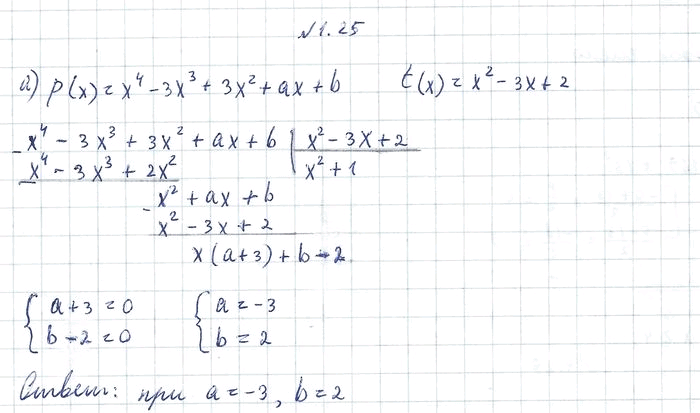 №1.25
а) p(x) = x⁴ - 3x³ + 3x² + ax + b t(x) = x² - 3x + 2
x⁴ - 3x³ + 3x² + ax + b | x² - 3x + 2
x⁴ - 3x³ + 2x² | x² + 1
- x² + ax + b
x² - 3x + 2
x(a+3) + b - 2
{ a + 3 = 0 { a = -3
{ b - 2 = 0 { b = 2
Ответ: при a = -3, b = 2